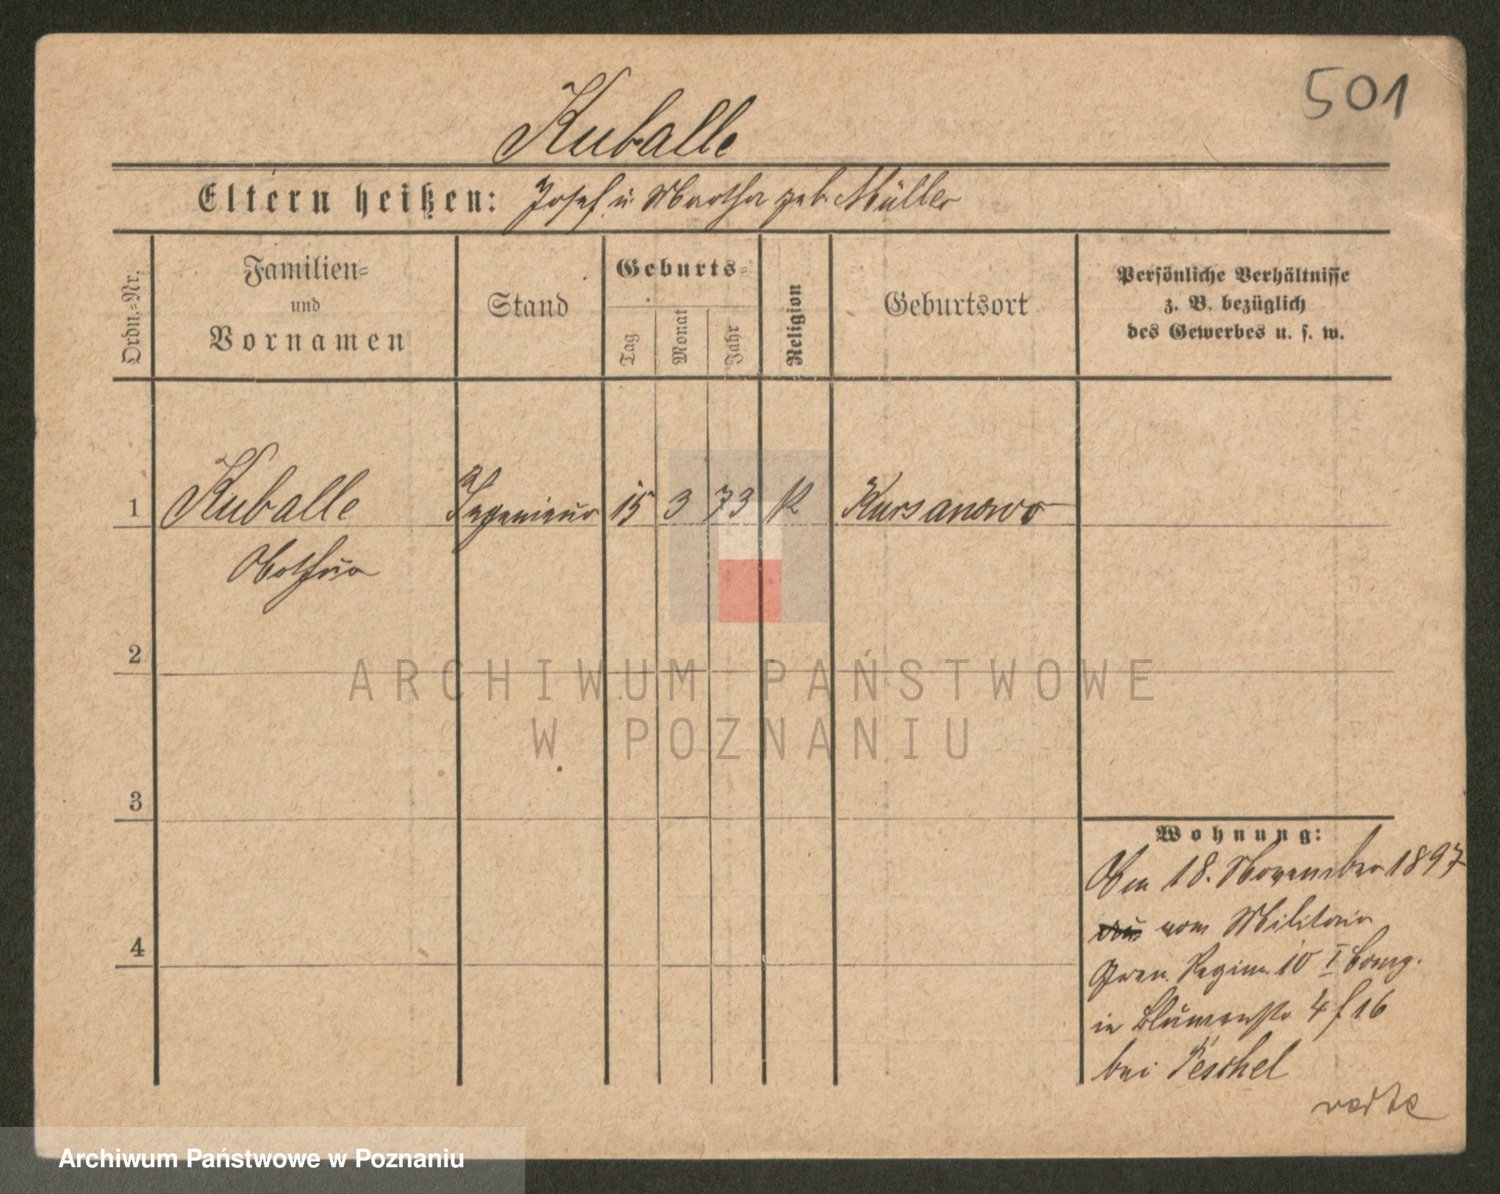 501
Kuballe
Eltern heißen: Josef u Martha geb. Müller
Ordn.-Nr.
Familien- und Vornamen
Stand
Geburts-
Tag
Monat
Jahr
Religion
Geburtsort
Persönliche Verhältnisse
z. B. bezüglich
des Gewerbes u. s. w.
1 Kuballe Ingenieur 15 3 73 K Kursanowo
2
3
4
Wohnung:
Am 18. November 1897
vom Militair
Gren. Regim. 10 I Comp.
in Blumenstr 4 f 16
bei Peschel
verte
ARCHIWUM PAŃSTWOWE
W POZNANIU
Archiwum Państwowe w Poznaniu